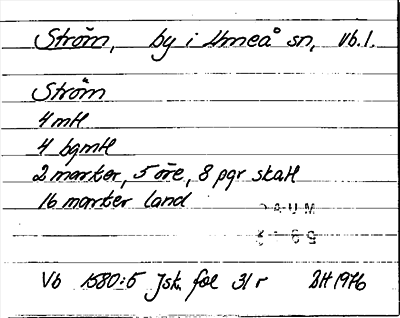 Ström, by i Umeå sn, Vb.l.
Ström
4 mtl
4 bgmtl
2 marker, 5 öre, 8 pgr skatt
16 marker land
Vb 1580:5 Jsk. fol 31 r BH 1976